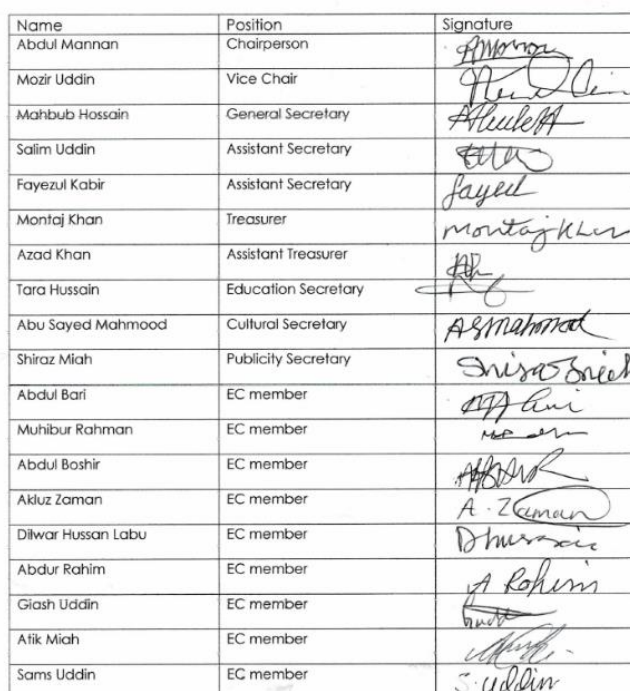 Name Position Signature
Abdul Mannan Chairperson
Mozir Uddin Vice Chair
Mahbub Hossain General Secretary
Salim Uddin Assistant Secretary
Fayezul Kabir Assistant Secretary Sayed
Montaj Khan Treasurer Montaj Khan
Azad Khan Assistant Treasurer
Tara Hussain Education Secretary
Abu Sayed Mahmood Cultural Secretary ASMahmood
Shiraz Miah Publicity Secretary
Abdul Bari EC member
Muhibur Rahman EC member
Abdul Boshir EC member
Akluz Zaman EC member A. Zaman
Dilwar Hussan Labu EC member Dhussain
Abdur Rahim EC member A Rohim
Giash Uddin EC member
Atik Miah EC member
Sams Uddin EC member S. Uddin